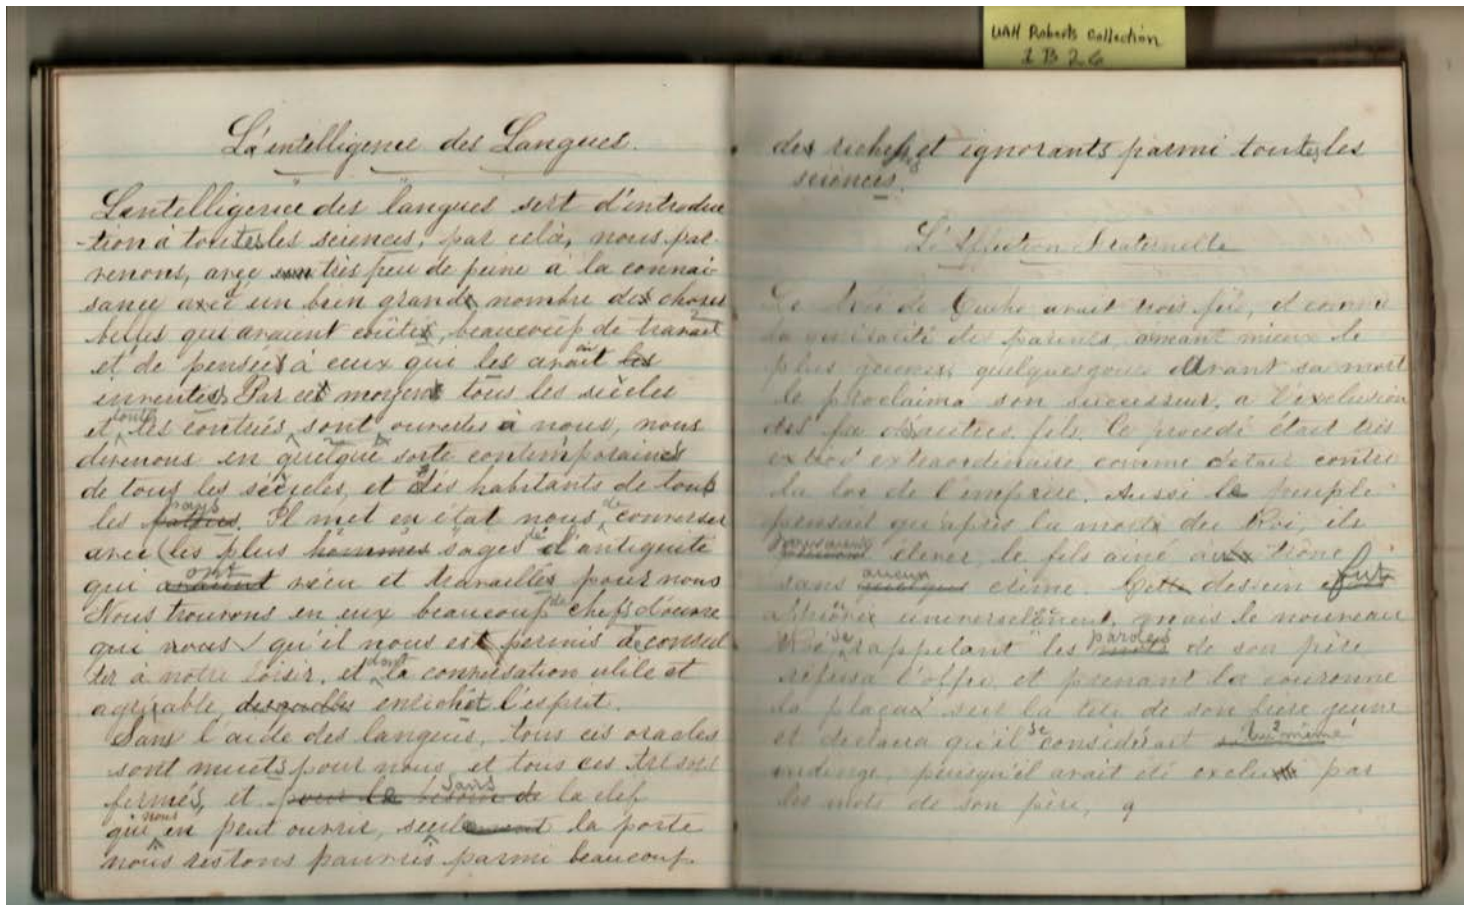 UAH Roberts Collection
1 B 26
L'intelligence des Langues.
L'intelligence des langues sert d'introduc
-tion à toutes les sciences, par cela, nous par-
venons, avec très peu de peine à la connai
sance d'un bien grand nombre de choses
qui avaient coûté, beaucoup de travail
et de pensées à ceux que les avait les
inventés. Par ce moyen tous les siècles
et toutes les contrées, sont ouvertes à nous, nous
devenons en quelque sorte contemporaines
de tous les siècles, et des habitants de tous
les pays. Il met en état nous de converser
avec les plus hommes sages d'antiquité
qui ont avaient vécu et travaillés pour nous
Nous trouvons en eux beaucoup de chefs d'œuvre
qui nous qu'il nous est permis de consul
ter à notre loisir, et dont la conversation utile et
agréable, desquelles enrichit l'esprit.
Sans l'aide des langues, tous ces oracles
sont muets pour nous, et tous ces tresors
fermés, et pour le besoin de sans la clef
qui nous en peut ouvrir, seulement la porte
nous restons pauvres parmi beaucoup
des riches et ignorants parmi toutes les
sciences.
L'Affection Fraternelle
Le Roi de avait trois fils, et comme
la qualité de parents, aimant mieux le
plus jeune, quelques jours avant sa mort
le proclaima son successeur, a l'exclusion
des autres fils. Ce procédé était très
extraordinaire, comme c'etait contre
la loi de l'empire. Aussi le peuple
pensait qu'après la mort du Roi, ils
élever, le fils ainé au trône
sans aucun crime. Cette dessein fut
universelement, mais le nouveau
Roi se rappelant les mots paroles de son père
refusa l'offre, et prenant la couronne
la plaçait sur la tete de son frere jeune
et declara qu'il se considérait lui même
indinge, puisqu'il avait été exclu par
les mots de son père,